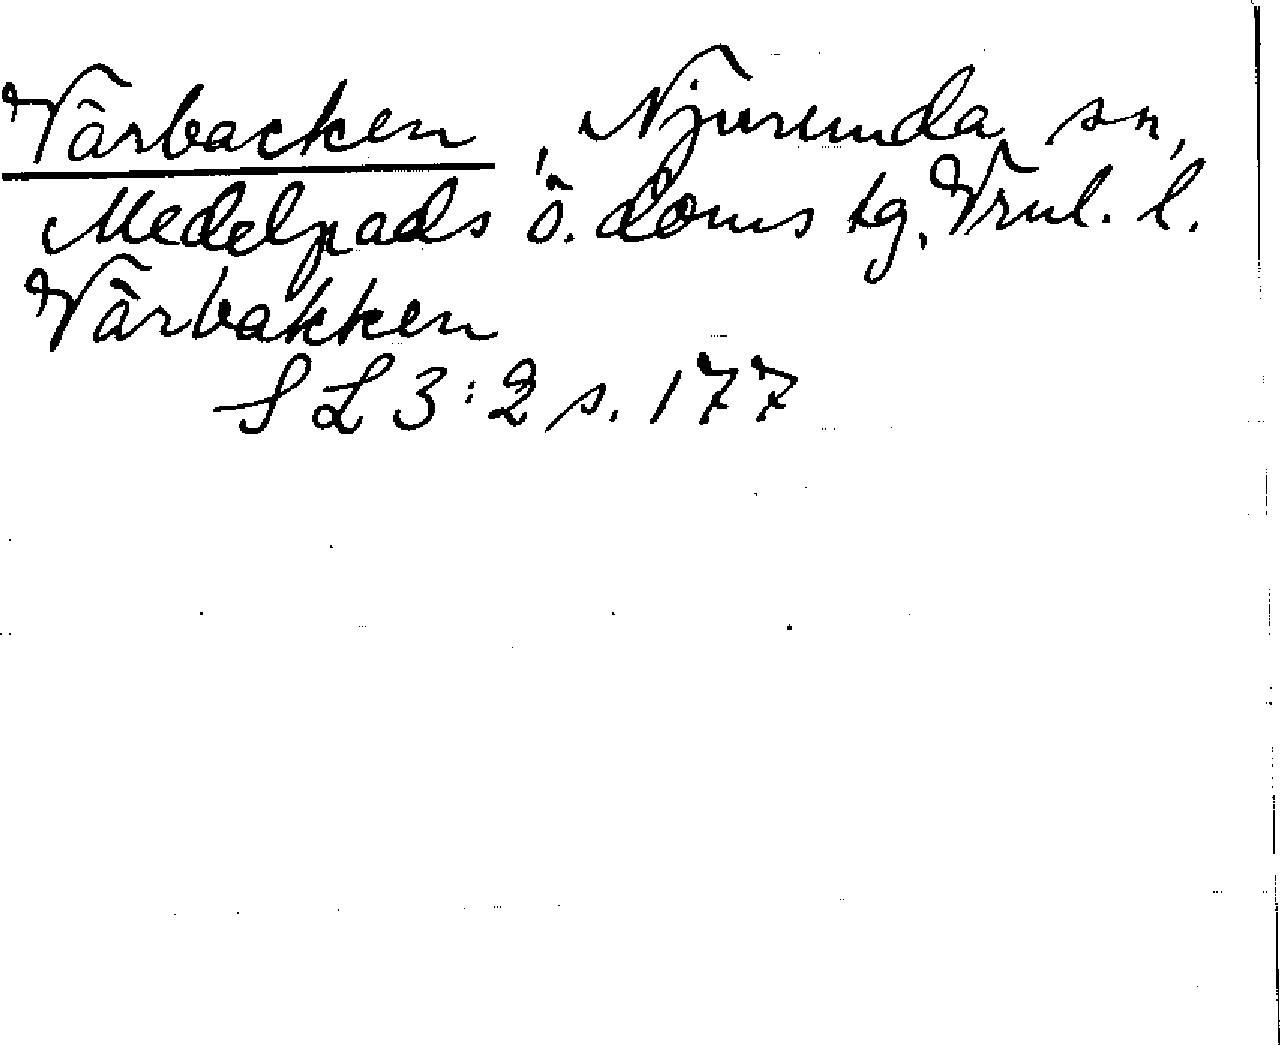 Vårbacken, Njurunda sn,
Medelpads ö. doms tg, Vrul. l.
Vårbakken
SL 3:2 s. 177